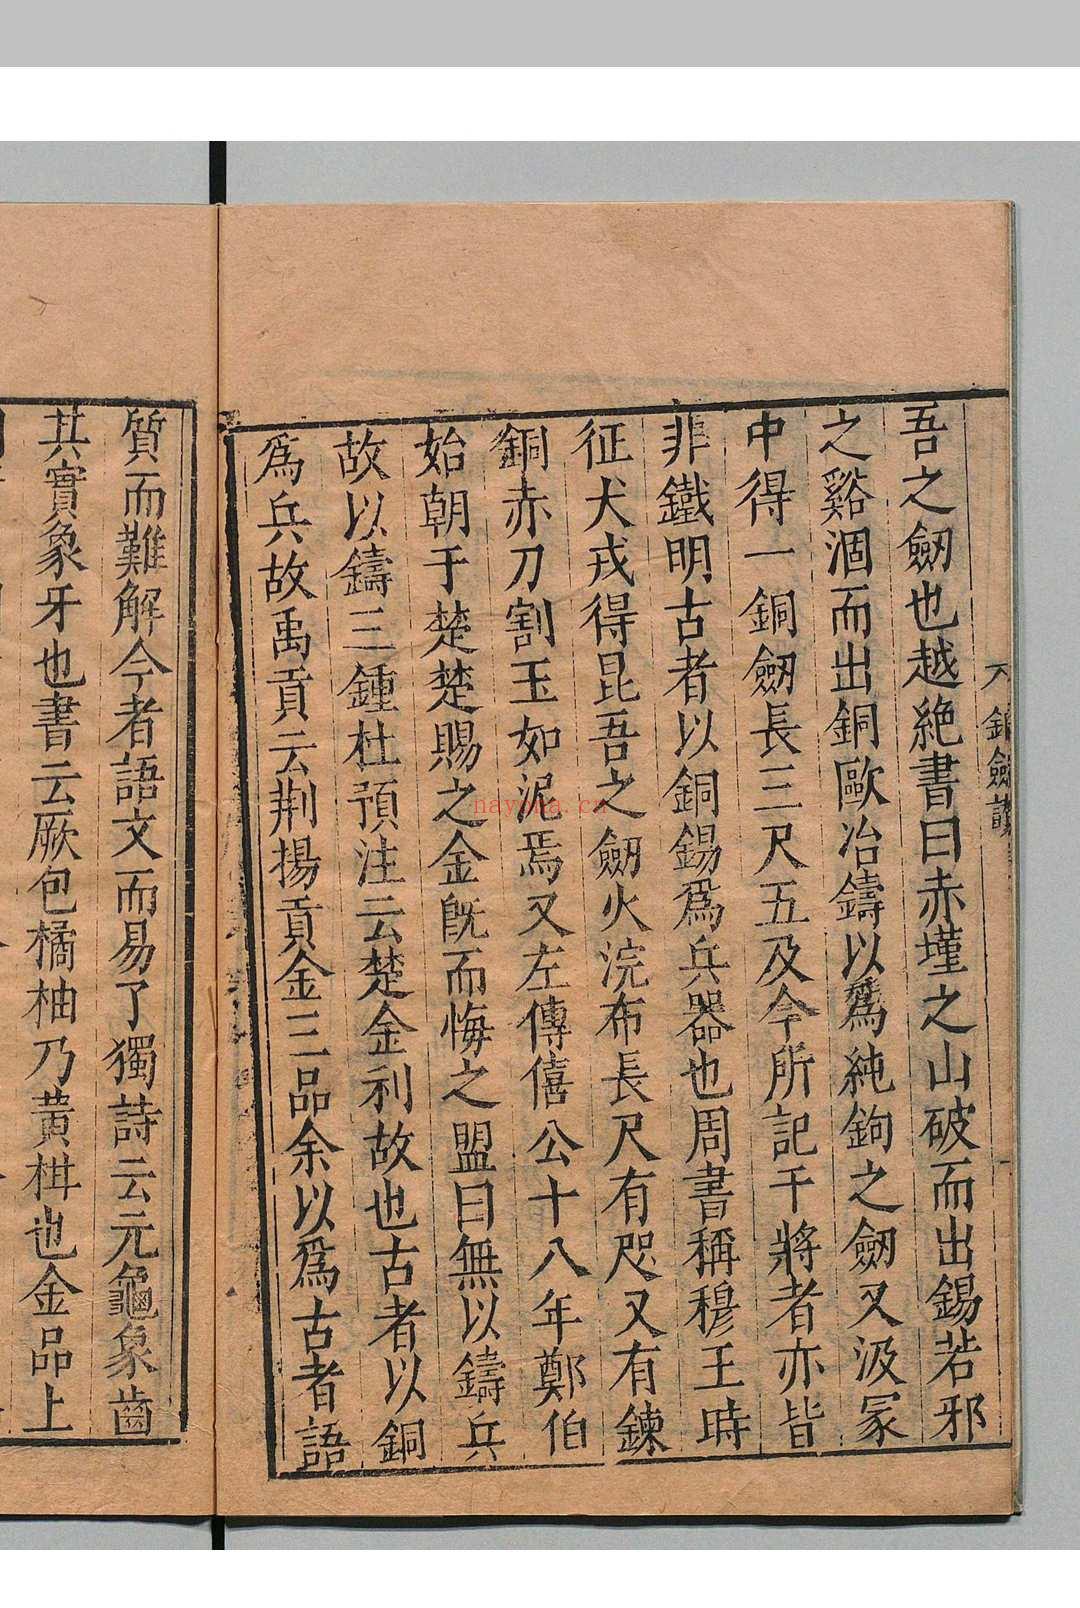 銅劍讚
吾之劒也越絶書曰赤墐之山破而出錫若邪
之谿涸而出銅歐冶鑄以爲純鉤之劒又汲冢
中得一銅劒長三尺五及今所記干將者亦皆
非鐵明古者以銅錫爲兵器也周書稱穆王時
征犬戎得昆吾之劒火浣布長尺有咫又有鍊
銅赤刀割玉如泥焉又左傳僖公十八年鄭伯
始朝于楚楚賜之金旣而悔之盟曰無以鑄兵
故以鑄三鍾杜預注云楚金利故也古者以銅
爲兵故禹貢云荆揚貢金三品余以爲古者語
質而難解今者語文而易了獨詩云元龜象齒
其實象牙也書云厥包橘柚乃黃柑也金品上
nayona.cn